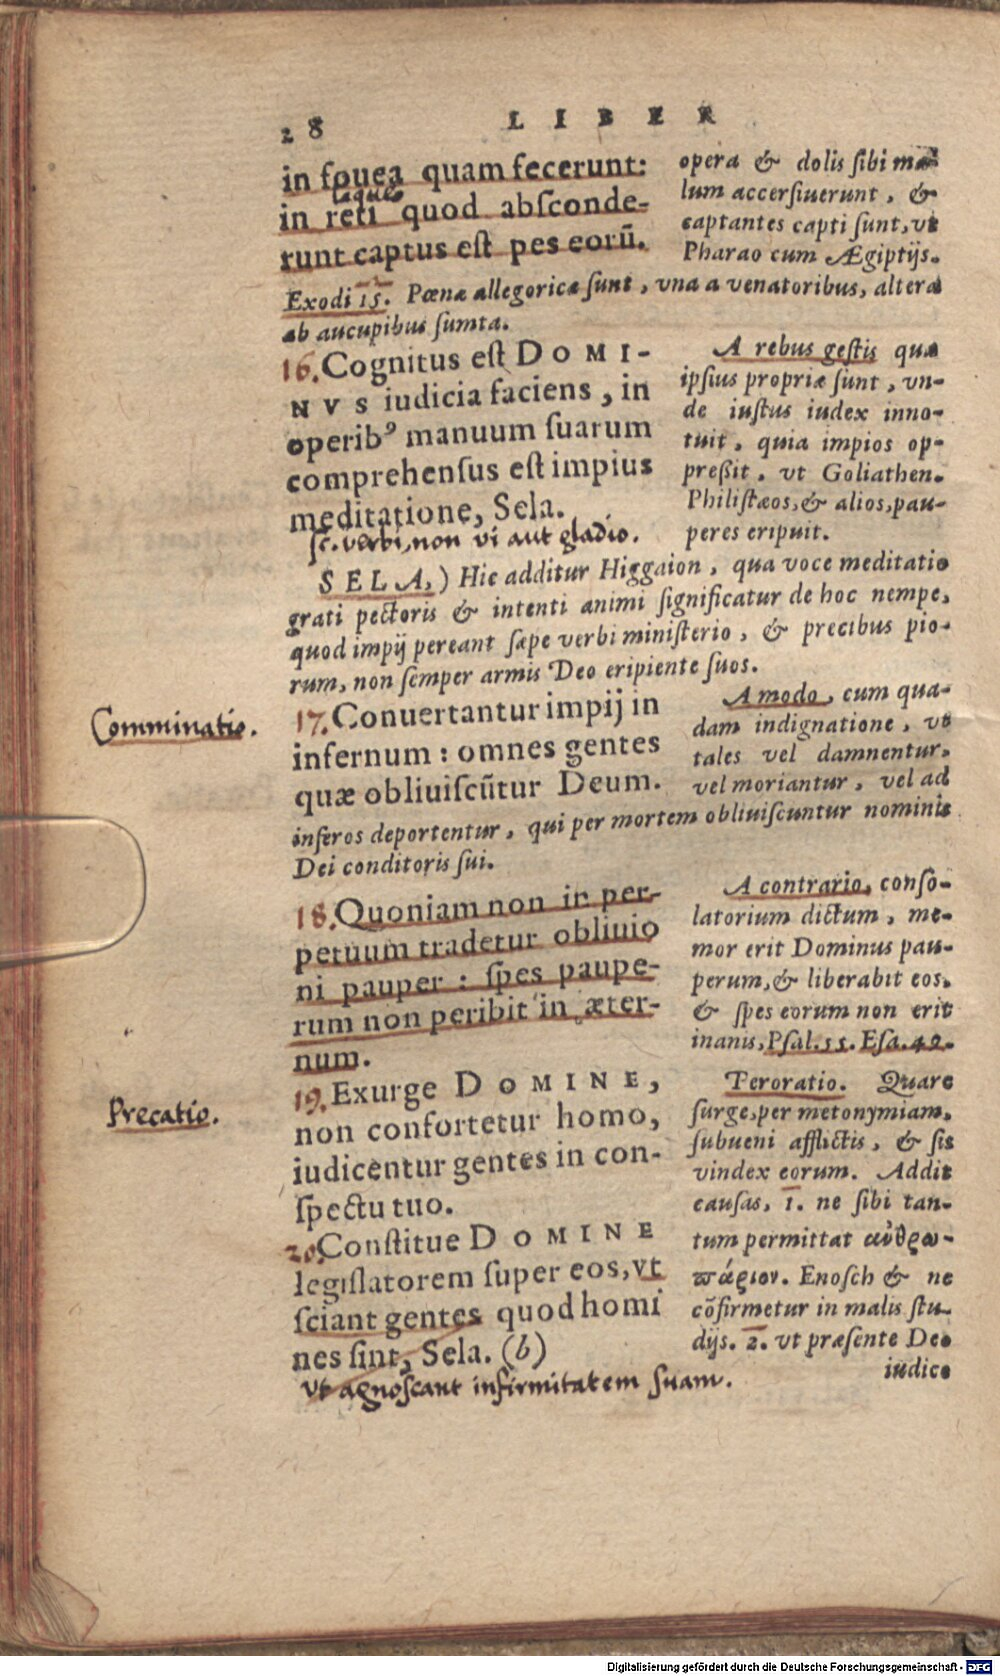 28 LIBER
in fouea quam fecerunt:
laqueo
in reti quod absconde-
runt captus est pes eorũ.
opera & dolis sibi ma
lum accersiuerunt, &
captantes capti sunt, vt
Pharao cum Ægiptijs.
Exodi 15. Pœnæ allegoricæ sunt, vna a venatoribus, altera
ab aucupibus sumta.
16. Cognitus est DOMI-
NVS iudicia faciens, in
operibꝰ manuum suarum
comprehensus est impius
meditatione, Sela.
sc. verbi, non vi aut gladio.
A rebus gestis quæ
ipsius propriæ sunt, vn-
de iustus iudex inno-
tuit, quia impios op-
preßit, vt Goliathen.
Philistæos, & alios, pau-
peres eripuit.
SELA.) Hic additur Higgaion, qua voce meditatio
grati pectoris & intenti animi significatur de hoc nempe,
quod impij pereant sæpe verbi ministerio, & precibus pio-
rum, non semper armis Deo eripiente suos.
Comminatio.
17. Conuertantur impij in
infernum: omnes gentes
quæ obliuiscũtur Deum.
A modo, cum qua-
dam indignatione, vt
tales vel damnentur,
vel moriantur, vel ad
inferos deportentur, qui per mortem obliuiscuntur nominis
Dei conditoris sui.
18. Quoniam non in per-
petuum tradetur obliuio
ni pauper: spes paupe-
rum non peribit in æter-
num.
A contrario, conso-
latorium dictum, me-
mor erit Dominus pau-
perum, & liberabit eos,
& spes eorum non erit
inanis, Psal. 55. Esa. 49.
Precatio.
19. Exurge DOMINE,
non confortetur homo,
iudicentur gentes in con-
spectu tuo.
20. Constitue DOMINE
legislatorem super eos, vt
sciant gentes quod homi
nes sint, Sela. (b)
vt agnoscant infirmitatem suam.
Peroratio. Quare
surge, per metonymiam,
subueni afflictis, & sis
vindex eorum. Addit
causas, 1. ne sibi tan-
tum permittat αὐθρω-
πάριον. Enosch & ne
cõfirmetur in malis stu-
dijs. 2. vt præsente Deo
iudice
Digitalisierung gefördert durch die Deutsche Forschungsgemeinschaft - DFG